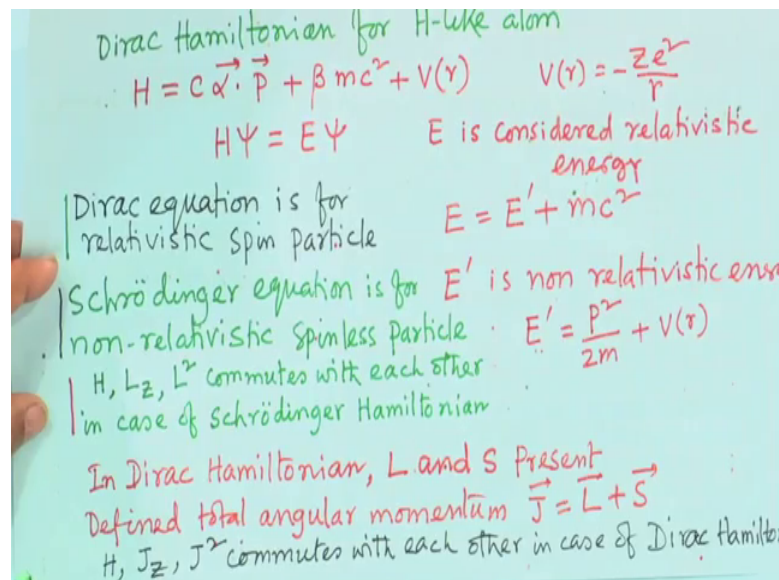 Dirac Hamiltonian for H-like atom
H = c α⃗. p⃗ + β mc² + V(r)   V(r) = - Ze²/r
Hψ = Eψ   E is considered relativistic
energy
Dirac equation is for
relativistic spin particle   E = E' + mc²
Schrödinger equation is for   E' is non relativistic ener
non-relativistic spinless particle.   E' = p²/2m + V(r)
H, Lz, L² commutes with each other
in case of Schrödinger Hamiltonian
In Dirac Hamiltonian, L and S Present
Defined total angular momentum J⃗ = L⃗ + S⃗
H, Jz, J² commutes with each other in case of Dirac Hamilto